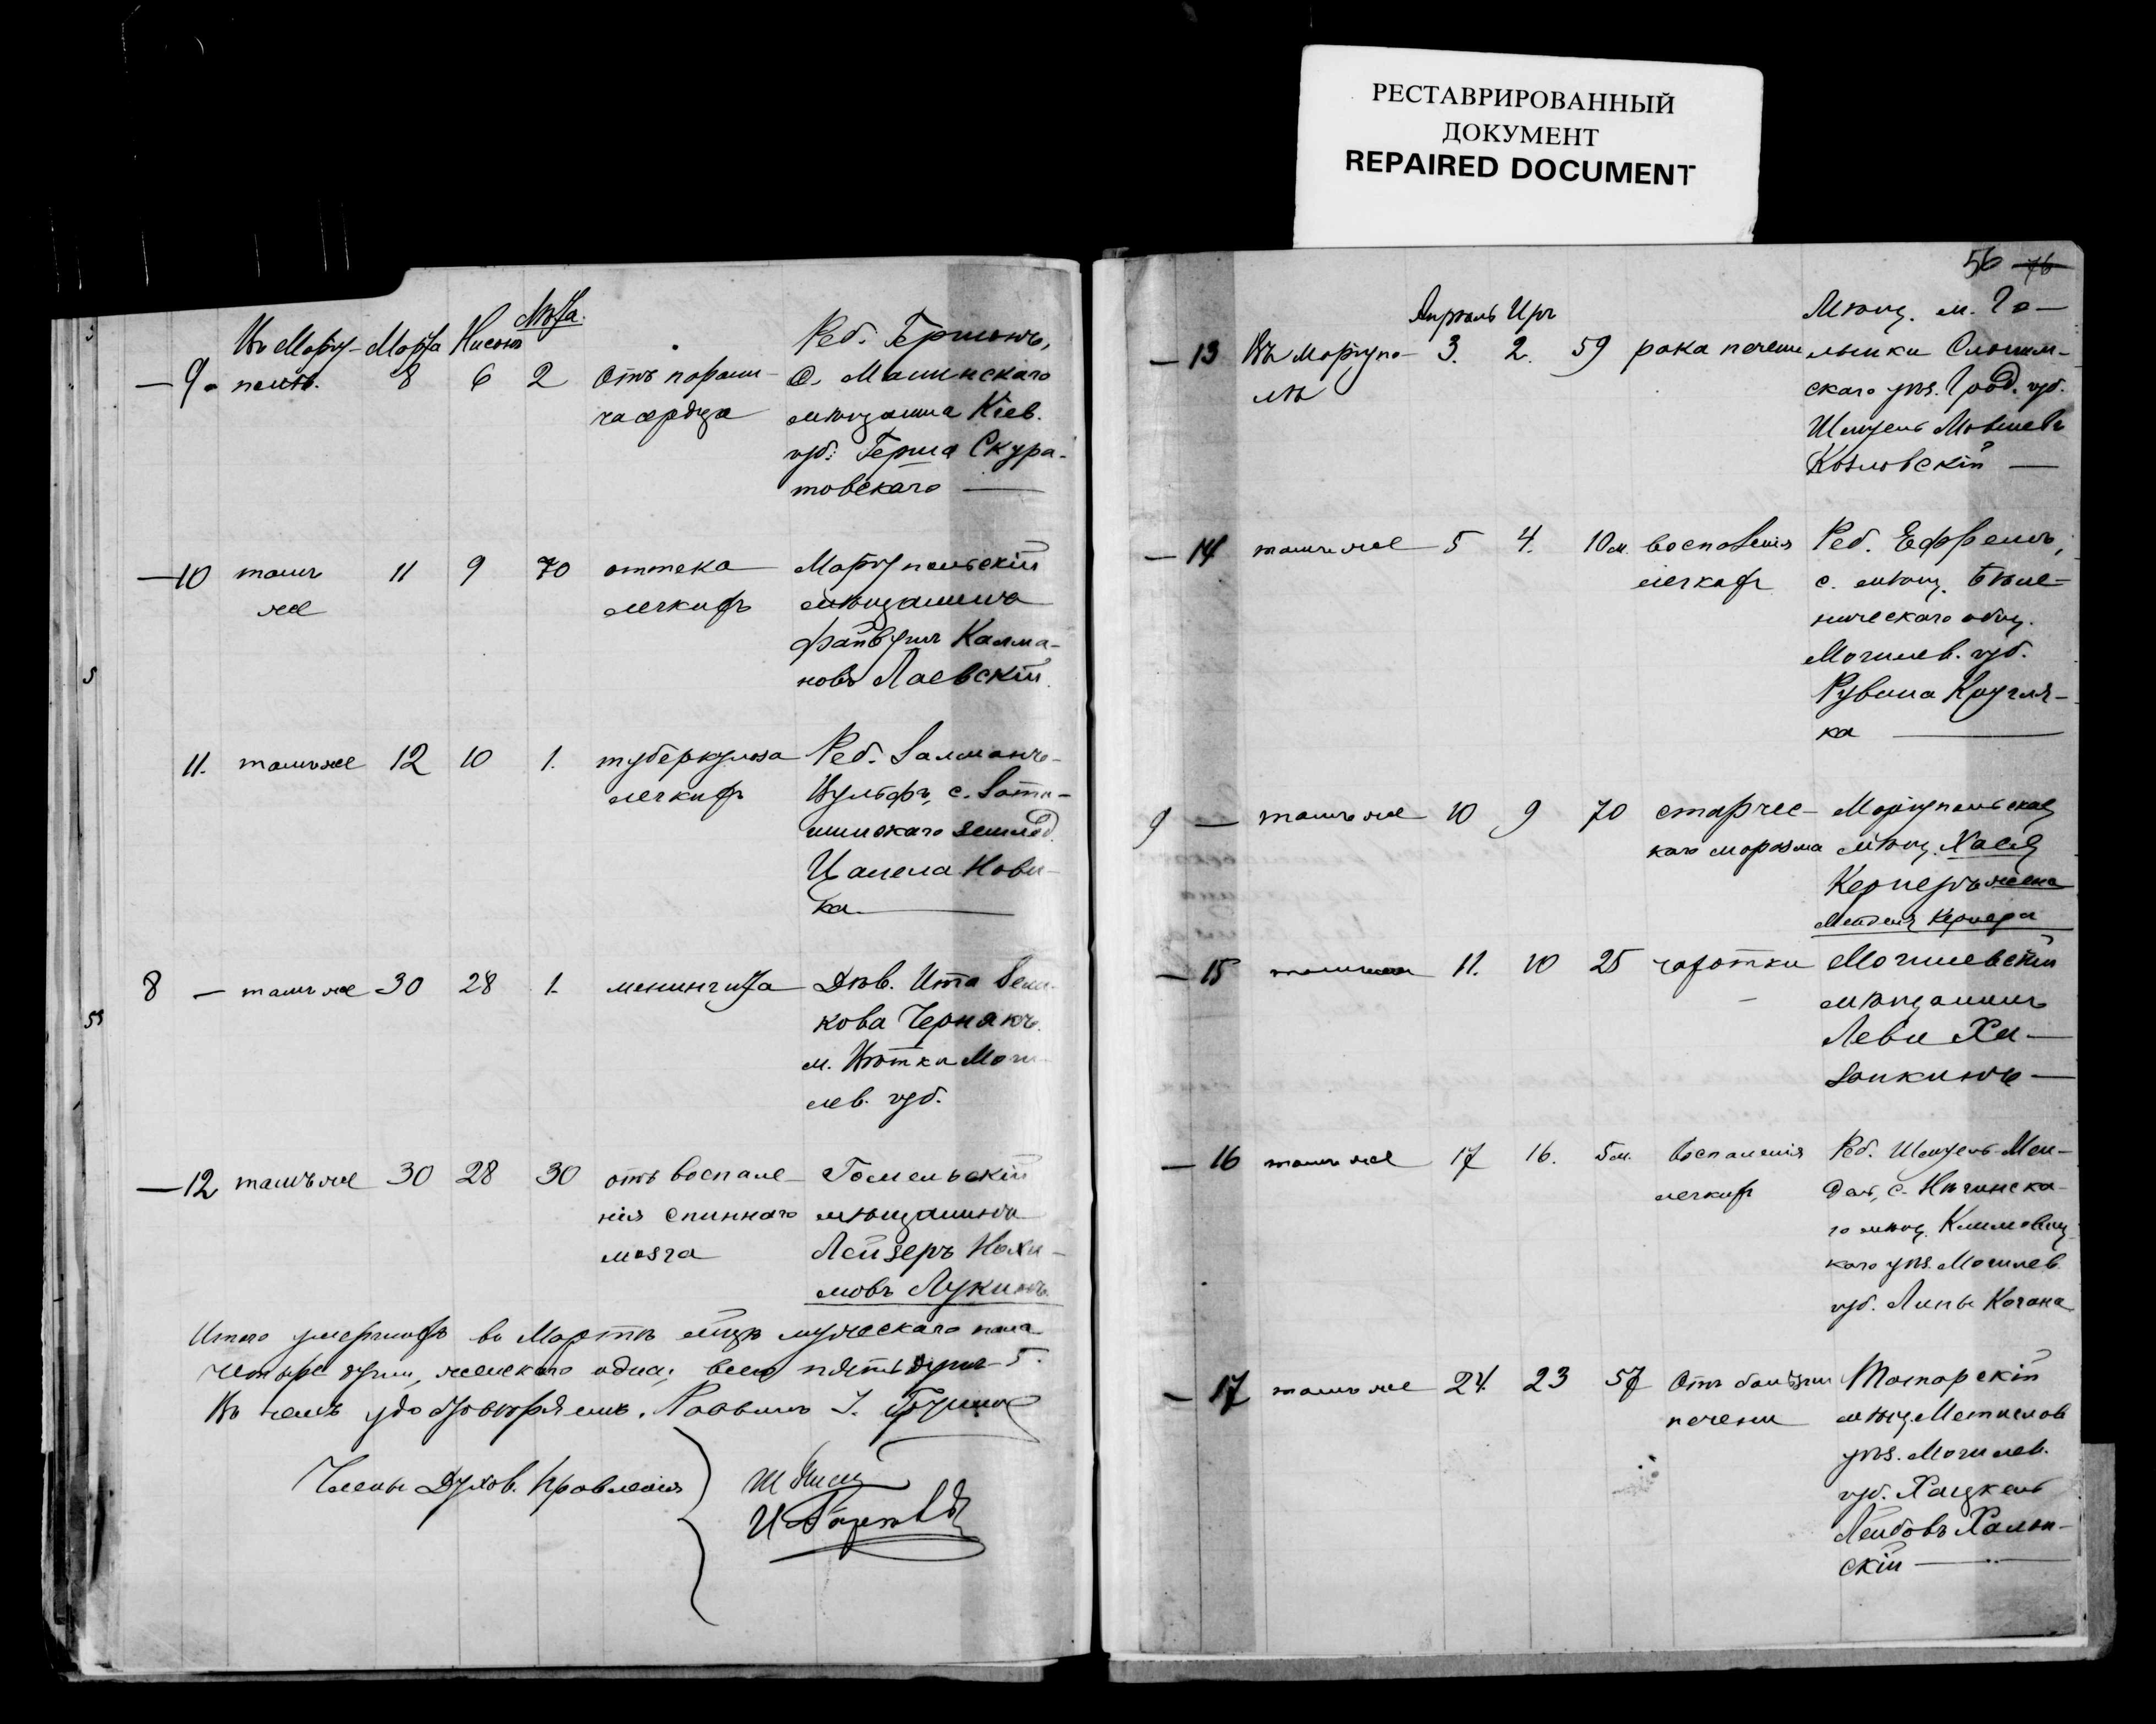 РЕСТАВРИРОВАННЫЙ
ДОКУМЕНТ
REPAIRED DOCUMENT
Марта Нисона Лѣта.
— 9. 8 6 2 Отъ парали-
ча сердца
Реб. Гершонъ,
мѣщанина Кіев.
губ. Герша Скура-
товскаго —
— 10 тамъ 11 9 70 оттека
же легкихъ
Маріупольскій
мѣщанинъ
Файвушъ Калма-
новъ Лаевскій
11. тамъ же 12 10 1. туберкулоза
легкихъ
Реб. Залманъ-
Вульфъ, с. Зати-
шинскаго землед.
Нови-
ка —
8 — тамъ же 30 28 1. менингита
Дѣв. Ита
кова Чернякъ
м. Вѣтка Моги-
лев. губ.
— 12 тамъ же 30 28 30 отъ воспале-
нія спиннаго
мозга
Гомельскій
мѣщанинъ
Лейзеръ Нохи-
мовъ Лукинъ.
Итого умершихъ въ Мартѣ м-цѣ мужескаго пола
четыре души, женскаго одна, всего пять душъ — 5.
Въ чемъ удостовѣряемъ. Раввинъ
Члены Духов. Правленія
56 76
Апрѣль Иръ
— 13 Въ Маріупо- 3. 2. 59 рака печени
лѣ
Мѣщ. м. Го-
лынки Слоним-
скаго уѣз. Грод. губ.
Шмуель Мовшевъ
Козловскій —
— 14 тамъ же 5 4. 10 м. воспаленія
легкихъ
Реб. Ефремъ,
с. мѣщ. Бѣлы-
ническаго общ.
Могилев. губ.
Рувина Кругля-
ка —
9 — тамъ же 10 9 70 старчес-
каго маразма
Маріупольская
мѣщ. Хася
Кернеръ жена
Менделя Кернера
— 15 тамъ же 11. 10 25 чахотки
Могилевскій
мѣщанинъ
Леви Ха-
занкинъ —
— 16 тамъ же 17 16. 5 м. воспаленія
легкихъ
Реб. Шмуель-Мен-
дель, с.
го мѣщ. Климовиц-
каго уѣз. Могилев.
губ. Липы Когана
— 17 тамъ же 24 23 57 Отъ болѣзни
печени
Татарскій
мѣщ. Мстислов.
уѣз. Могилев.
губ. Хацкель
Лейбовъ
скій —